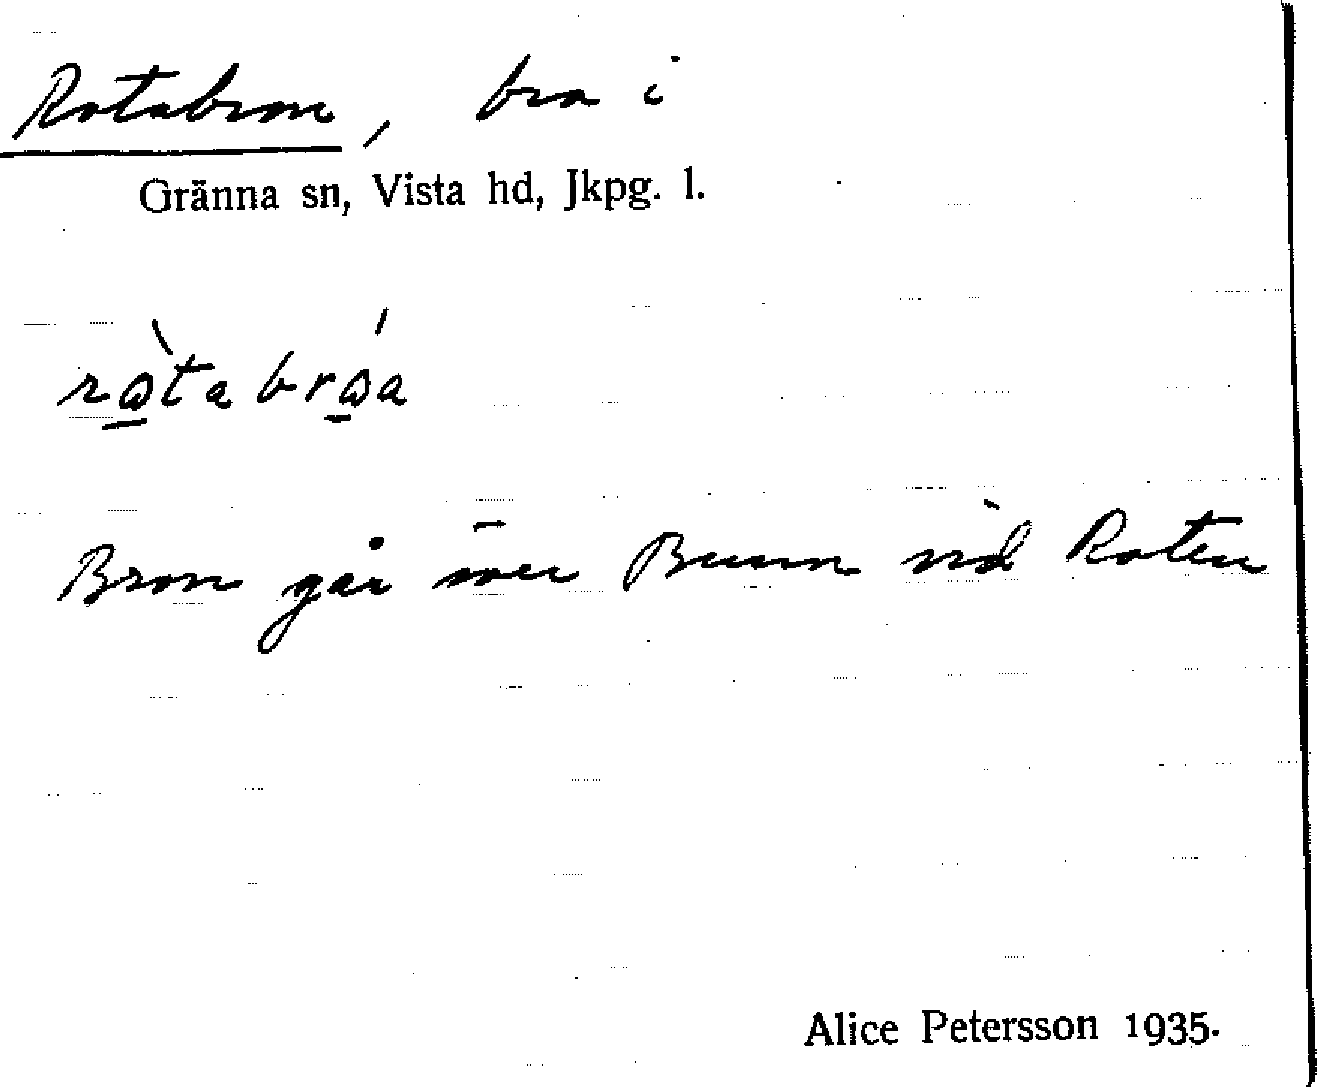 Rotabron, bro i
Gränna sn, Vista hd, Jkpg. l.
ròtabróa
Bron går över Bunn vid Roten
Alice Petersson 1935.